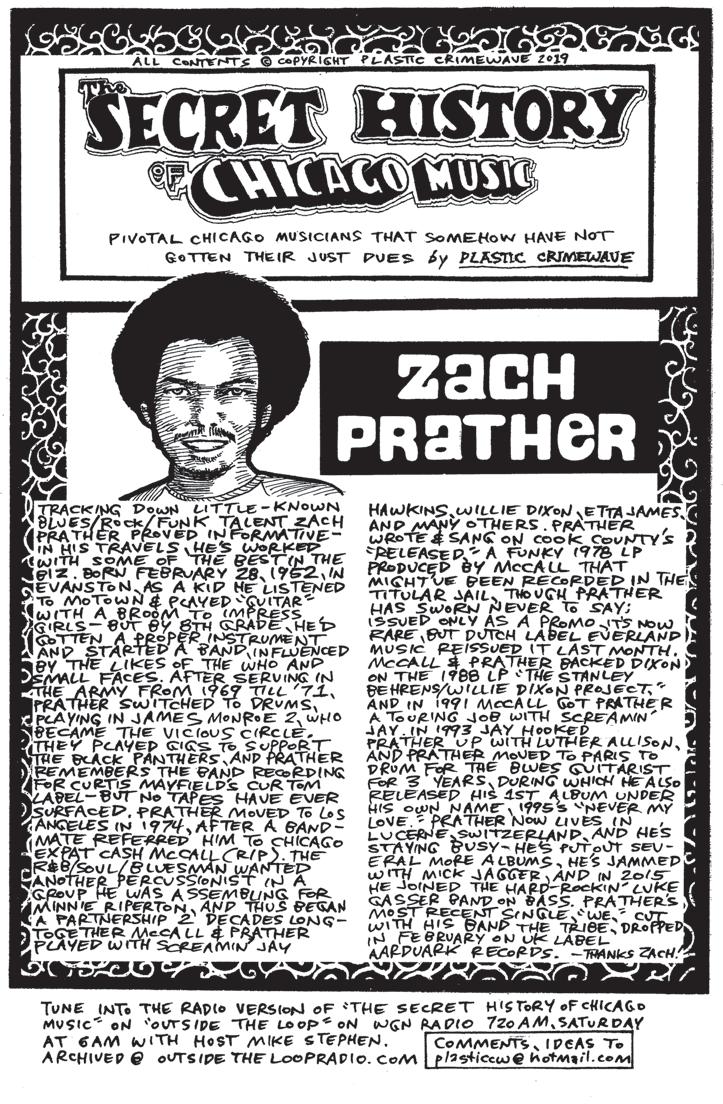 ALL CONTENTS © COPYRIGHT PLASTIC CRIMEWAVE 2019
The
SECRET HISTORY
OF CHICAGO MUSIC
PIVOTAL CHICAGO MUSICIANS THAT SOMEHOW HAVE NOT
GOTTEN THEIR JUST DUES by PLASTIC CRIMEWAVE
ZACH
PRATHER
TRACKING DOWN LITTLE-KNOWN
BLUES/ROCK/FUNK TALENT ZACH
PRATHER PROVED INFORMATIVE-
IN HIS TRAVELS, HE'S WORKED
WITH SOME OF THE BEST IN THE
BIZ. BORN FEBRUARY 28, 1952, IN
EVANSTON, AS A KID HE LISTENED
TO MOTOWN & PLAYED "GUITAR"
WITH A BROOM TO IMPRESS
GIRLS- BUT BY 8TH GRADE, HE'D
GOTTEN A PROPER INSTRUMENT
AND STARTED A BAND, INFLUENCED
BY THE LIKES OF THE WHO AND
SMALL FACES. AFTER SERVING IN
THE ARMY FROM 1969 TILL '71,
PRATHER SWITCHED TO DRUMS,
PLAYING IN JAMES MONROE 2, WHO
BECAME THE VICIOUS CIRCLE.
THEY PLAYED GIGS TO SUPPORT
THE BLACK PANTHERS, AND PRATHER
REMEMBERS THE BAND RECORDING
FOR CURTIS MAYFIELD'S CURTOM
LABEL-BUT NO TAPES HAVE EVER
SURFACED. PRATHER MOVED TO LOS
ANGELES IN 1974, AFTER A BAND-
MATE REFERRED HIM TO CHICAGO
EXPAT CASH McCALL (R.I.P.). THE
R&B/SOUL/BLUESMAN WANTED
ANOTHER PERCUSSIONIST IN A
GROUP HE WAS ASSEMBLING FOR
MINNIE RIPERTON, AND THUS BEGAN
A PARTNERSHIP 2 DECADES LONG-
TOGETHER McCALL & PRATHER
PLAYED WITH SCREAMIN' JAY
HAWKINS, WILLIE DIXON, ETTA JAMES,
AND MANY OTHERS. PRATHER
WROTE & SANG ON COOK COUNTY'S
"RELEASED," A FUNKY 1978 LP
PRODUCED BY McCALL THAT
MIGHT'VE BEEN RECORDED IN THE
TITULAR JAIL, THOUGH PRATHER
HAS SWORN NEVER TO SAY;
ISSUED ONLY AS A PROMO, IT'S NOW
RARE, BUT DUTCH LABEL EVERLAND
MUSIC REISSUED IT LAST MONTH.
McCALL & PRATHER BACKED DIXON
ON THE 1988 LP "THE STANLEY
BEHRENS/WILLIE DIXON PROJECT,"
AND IN 1991 McCALL GOT PRATHER
A TOURING JOB WITH SCREAMIN'
JAY. IN 1993 JAY HOOKED
PRATHER UP WITH LUTHER ALLISON,
AND PRATHER MOVED TO PARIS TO
DRUM FOR THE BLUES GUITARIST
FOR 3 YEARS, DURING WHICH HE ALSO
RELEASED HIS 1ST ALBUM UNDER
HIS OWN NAME, 1995'S "NEVER MY
LOVE." PRATHER NOW LIVES IN
LUCERNE, SWITZERLAND, AND HE'S
STAYING BUSY- HE'S PUT OUT SEV-
ERAL MORE ALBUMS, HE'S JAMMED
WITH MICK JAGGER, AND IN 2015
HE JOINED THE HARD-ROCKIN' LUKE
GASSER BAND ON BASS. PRATHER'S
MOST RECENT SINGLE, "WE," CUT
WITH HIS BAND THE TRIBE, DROPPED
IN FEBRUARY ON UK LABEL
AARDVARK RECORDS. -THANKS ZACH!
TUNE INTO THE RADIO VERSION OF "THE SECRET HISTORY OF CHICAGO
MUSIC" ON "OUTSIDE THE LOOP" ON WGN RADIO 720 AM, SATURDAY
AT 6AM WITH HOST MIKE STEPHEN.
ARCHIVED @ OUTSIDETHELOOPRADIO.COM
COMMENTS, IDEAS TO
plasticcw@hotmail.com